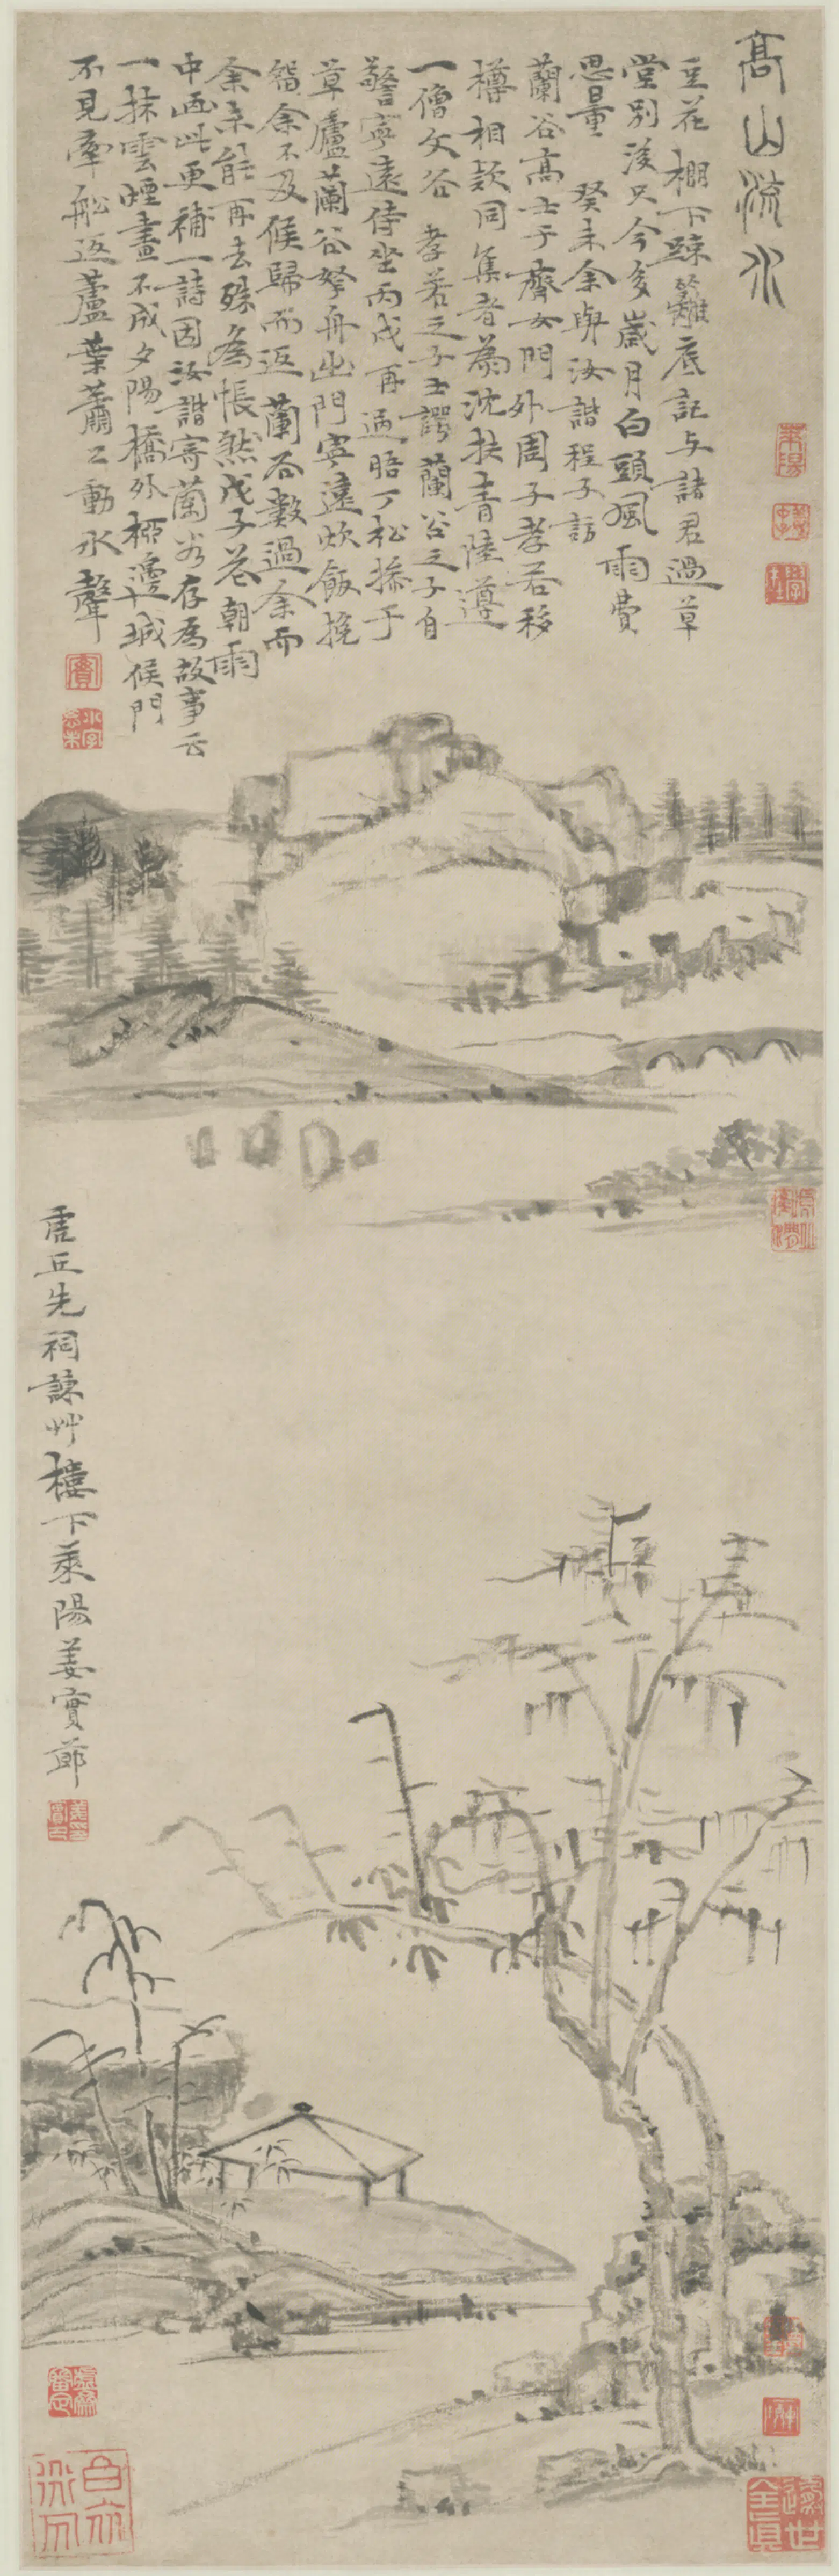 高山流水
豆花棚下疎籬底記与諸君過草
堂別後只今多歲月白頭風雨費
思量 癸未余與汝諧程子訪
蘭谷高士于齊女門外周子孝若移
樽相欵同集者為沈扶青陸遵
一僧文谷 孝若之子士諤蘭谷之子自
警寧遠侍坐丙戌再過晤丁松㨂于
草廬蘭谷拏舟出門寧遠炊飯挽
留余不及候歸而返蘭谷數過余而
余未能再去殊為悵然戊子花朝雨
中画此更補一詩因汝諧寄蘭谷存為故事云
一抹雲煙畫不成夕陽橋外柳邊城候門
不見牽船返蘆葉蕭〻動水聲
虎丘先祠諫艸樓下萊陽姜實節